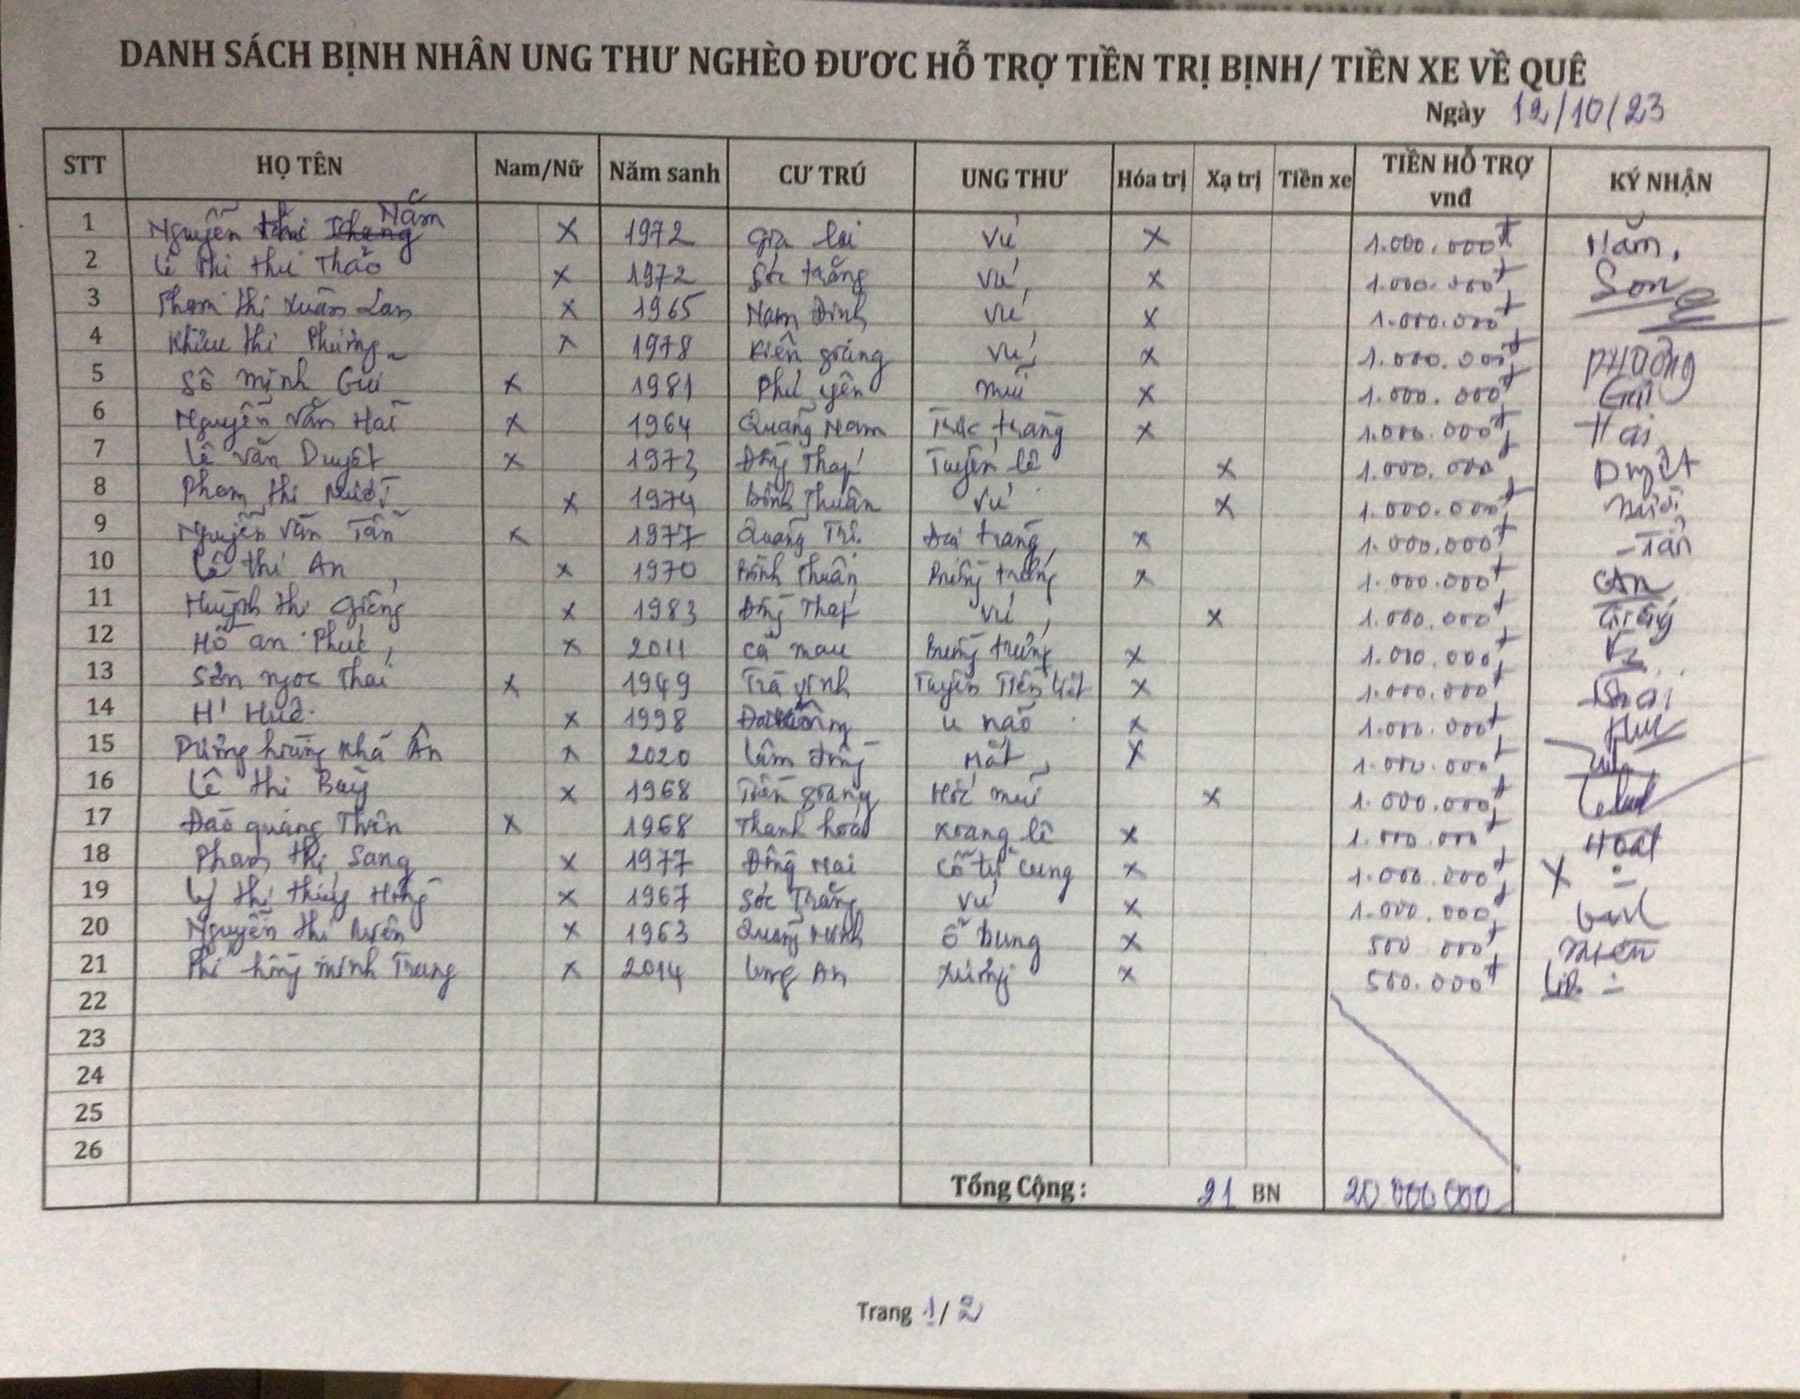 DANH SÁCH BỊNH NHÂN UNG THƯ NGHÈO ĐƯƠC HỖ TRỢ TIỀN TRỊ BỊNH/ TIỀN XE VỀ QUÊ
Ngày 12/10/23
STT HỌ TÊN Nam/Nữ Năm sanh CƯ TRÚ UNG THƯ Hóa trị Xạ trị Tiền xe TIỀN HỖ TRỢ vnđ KÝ NHẬN
1 Nguyễn thị Năm x 1972 Gia lai Vú x 1.000.000đ Năm.
2 Lê thi thu Thảo x 1972 Sóc trăng Vú x 1.000.000đ
3 Phạm thi Xuân Lan x 1965 Nam Định Vú x 1.000.000đ
4 Khưu thi Phượng x 1978 Kiên giang Vú x 1.000.000đ Phượng
5 Sô minh x 1981 Phú yên mũi x 1.000.000đ
6 Nguyễn Văn Hai x 1964 Quảng Nam Trực tràng x 1.000.000đ Hai
7 Lê Văn Duyệt x 1973 Đồng Tháp Tuyến lệ x 1.000.000đ Duyệt
8 Phạm thi Mười x 1974 Bình Thuận Vú x 1.000.000đ Mười
9 Nguyễn Văn Tấn x 1977 Quảng Trị Đại tràng x 1.000.000đ Tấn
10 Lê thi An x 1970 Bình Thuận Buồng trứng x 1.000.000đ An
11 Huỳnh thi Giềng x 1983 Đồng Tháp Vú x 1.000.000đ
12 Hồ an Phúc x 2011 Cà mau Buồng trứng x 1.000.000đ
13 Sơn ngọc Thái x 1949 Trà vinh Tuyến Tiền liệt x 1.000.000đ Thái
14 H' Huê x 1998 u não x 1.000.000đ
15 Dương hoàng Khả Ân x 2020 Lâm đồng Mắt x 1.000.000đ
16 Lê thi Bảy x 1968 Tiền giang Hốc mũi x 1.000.000đ
17 Đào quang x 1968 Thanh hoá Xoang lê x 1.000.000đ
18 Phạm thị Sang x 1977 Đồng Nai Cổ tử cung x 1.000.000đ X
19 Lý thi thúy Hồng x 1967 Sóc Trăng Vú x 1.000.000đ
20 Nguyễn thi x 1963 Quảng Ninh Ổ bụng x 500.000đ
21 Phi hồng minh Trang x 2014 Long An Xương x 500.000đ
22
23
24
25
26
Tổng Cộng : 21 BN 20.000.000
Trang 1/ 2